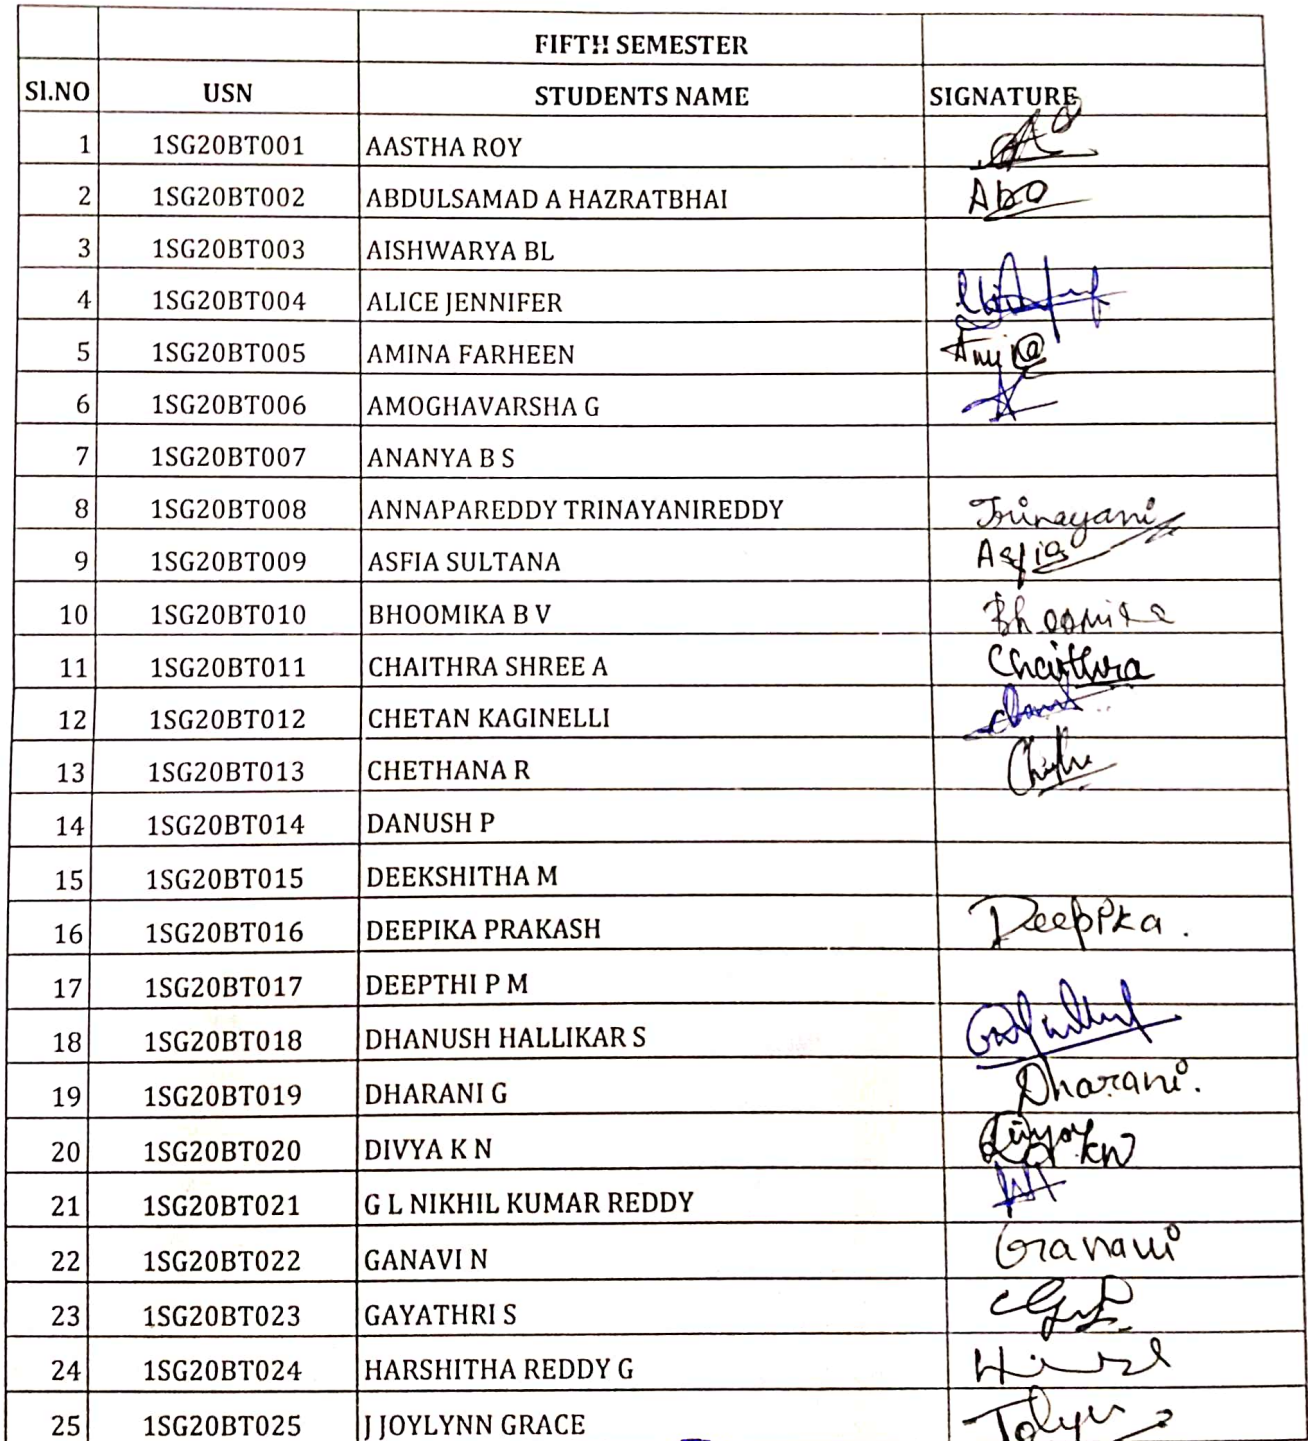 FIFTH SEMESTER
Sl.NO USN STUDENTS NAME SIGNATURE
1 1SG20BT001 AASTHA ROY
2 1SG20BT002 ABDULSAMAD A HAZRATBHAI
3 1SG20BT003 AISHWARYA BL
4 1SG20BT004 ALICE JENNIFER
5 1SG20BT005 AMINA FARHEEN
6 1SG20BT006 AMOGHAVARSHA G
7 1SG20BT007 ANANYA B S
8 1SG20BT008 ANNAPAREDDY TRINAYANIREDDY Trinayani
9 1SG20BT009 ASFIA SULTANA Asfia
10 1SG20BT010 BHOOMIKA B V Bhoomika
11 1SG20BT011 CHAITHRA SHREE A Chaithra
12 1SG20BT012 CHETAN KAGINELLI
13 1SG20BT013 CHETHANA R
14 1SG20BT014 DANUSH P
15 1SG20BT015 DEEKSHITHA M
16 1SG20BT016 DEEPIKA PRAKASH Deepika.
17 1SG20BT017 DEEPTHI P M
18 1SG20BT018 DHANUSH HALLIKAR S
19 1SG20BT019 DHARANI G Dharani.
20 1SG20BT020 DIVYA K N Divya KN
21 1SG20BT021 G L NIKHIL KUMAR REDDY
22 1SG20BT022 GANAVI N Ganavi
23 1SG20BT023 GAYATHRI S
24 1SG20BT024 HARSHITHA REDDY G
25 1SG20BT025 J JOYLYNN GRACE